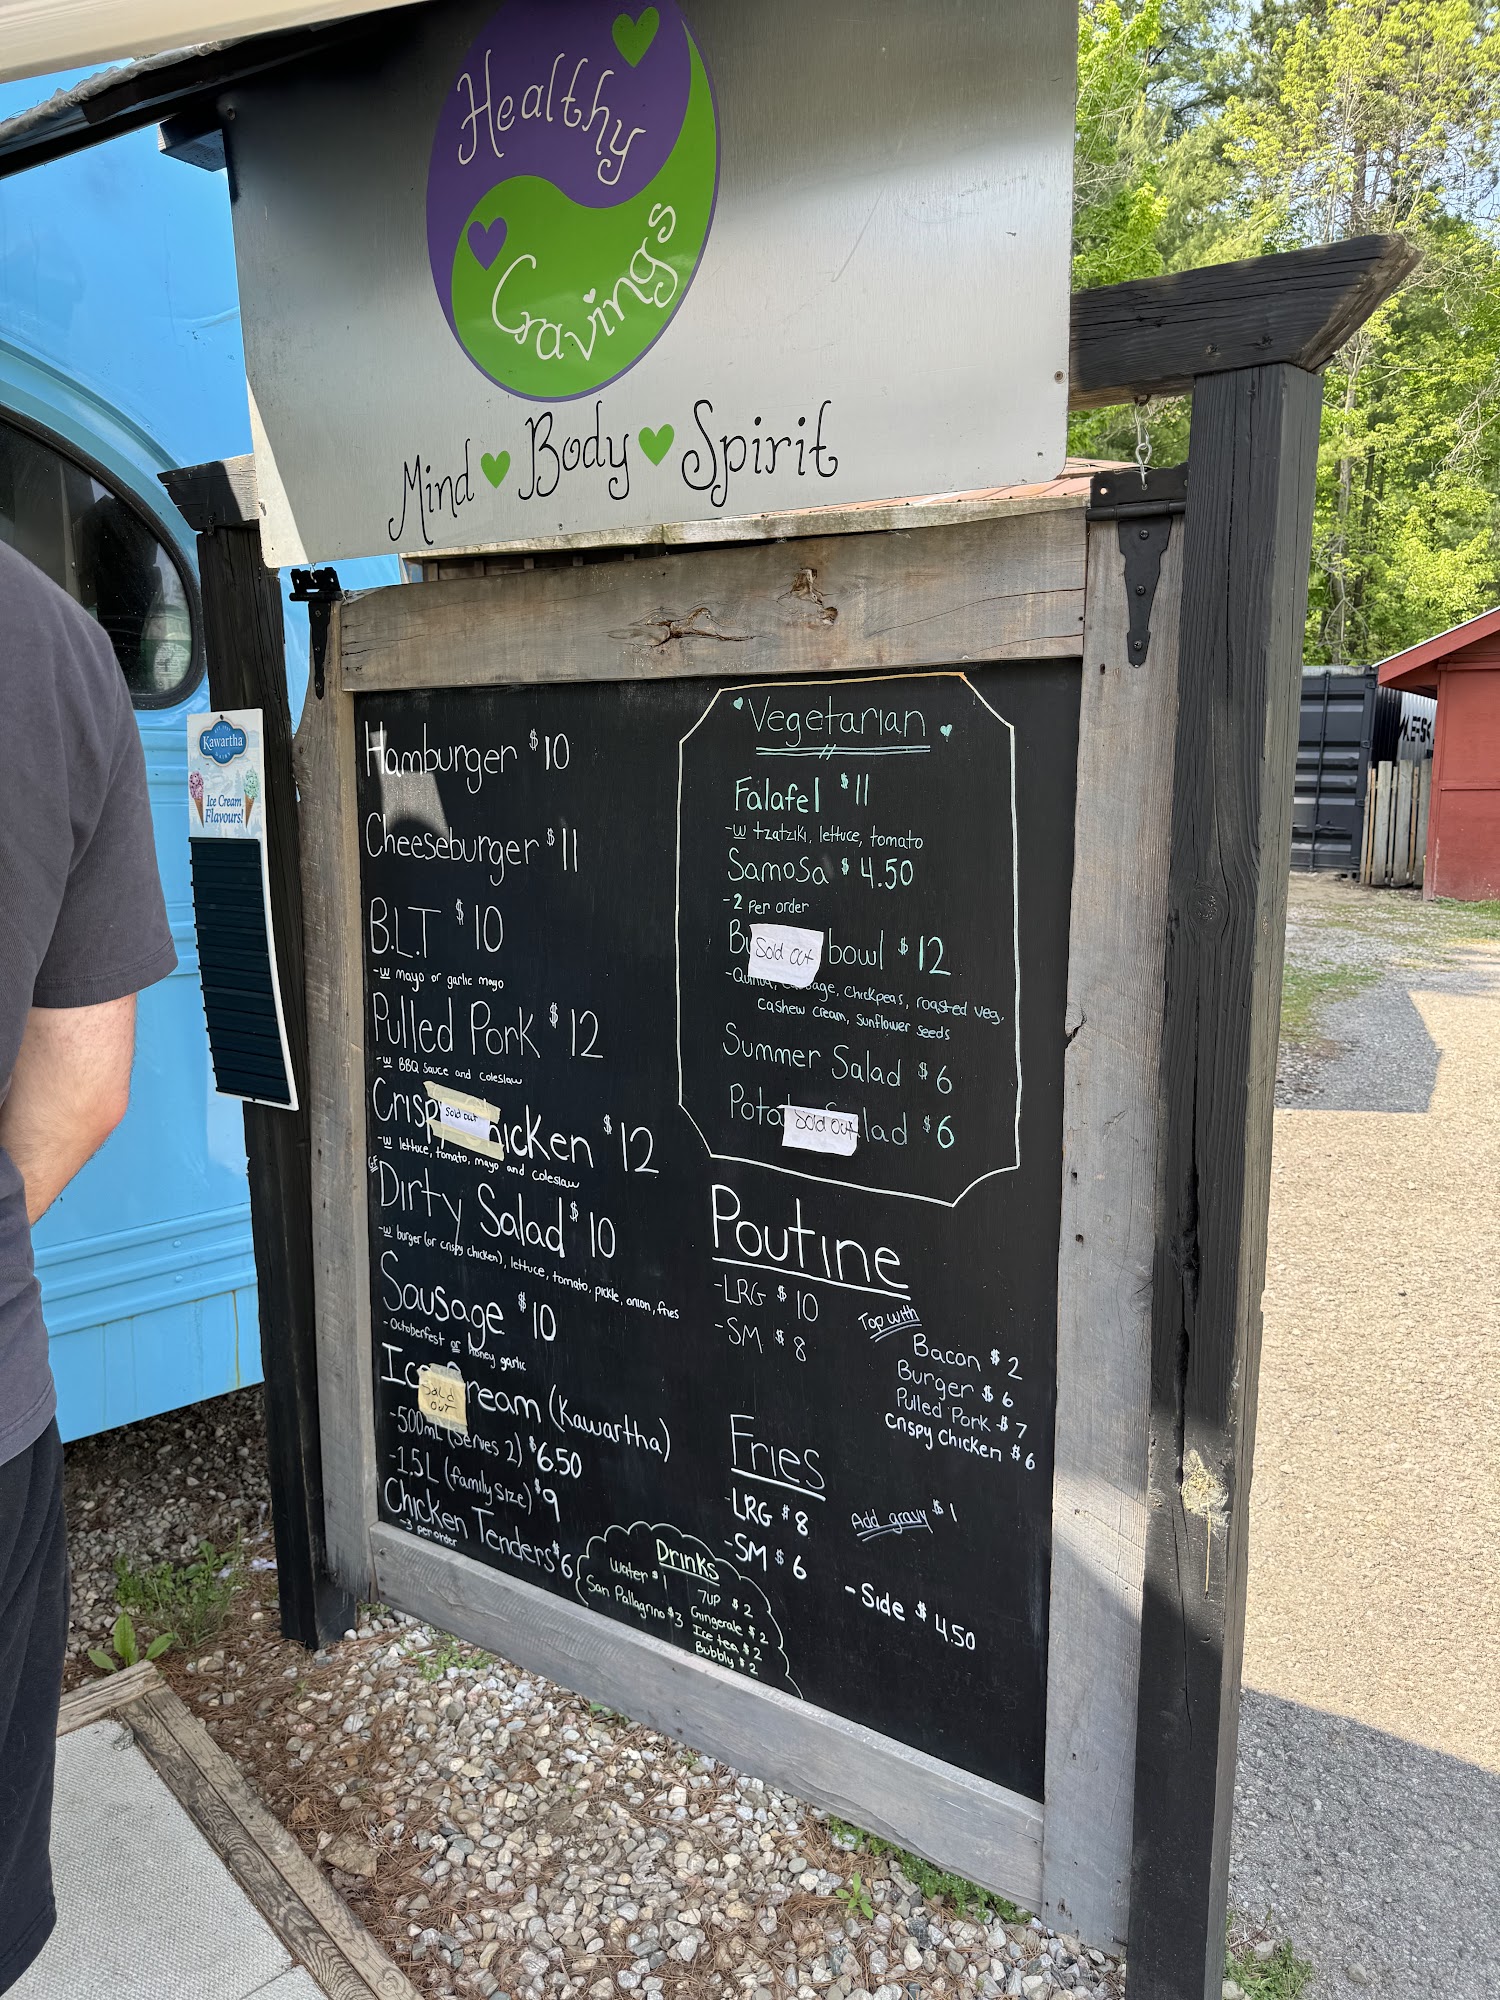 Healthy
Cravings
Mind Body Spirit
Kawartha
Ice Cream
Flavours!
Hamburger $10
Cheeseburger $11
B.L.T $10
-w mayo or garlic mayo
Pulled Pork $12
-w BBQ sauce and coleslaw
Crisp hicken $12
Sold out
-w lettuce, tomato, mayo and coleslaw
G.F.
Dirty Salad $10
-w burger (or crispy chicken), lettuce, tomato, pickle, onion, fries
Sausage $10
-Octoberfest or honey garlic
Ice ream (Kawartha)
SOLD
OUT
-500mL (serves 2) $6.50
-1.5L (family size) $9
Chicken Tenders $6
-3 per order
Vegetarian
Falafel $11
-w tzatziki, lettuce, tomato
Samosa $4.50
-2 Per order
Bu bowl $12
Sold out
-Quinoa, age, chickpeas, roasted veg,
cashew cream, sunflower seeds
Summer Salad $6
Potat lad $6
Sold out
Poutine
-LRG $10
-SM $8
Top with
Bacon $2
Burger $6
Pulled Pork $7
Crispy Chicken $6
Fries
-LRG $8
-SM $6
Add gravy $1
-Side $4.50
Drinks
Water $1
San Pallagrino $3
7UP $2
Gingerale $2
Ice tea $2
Bubbly $2